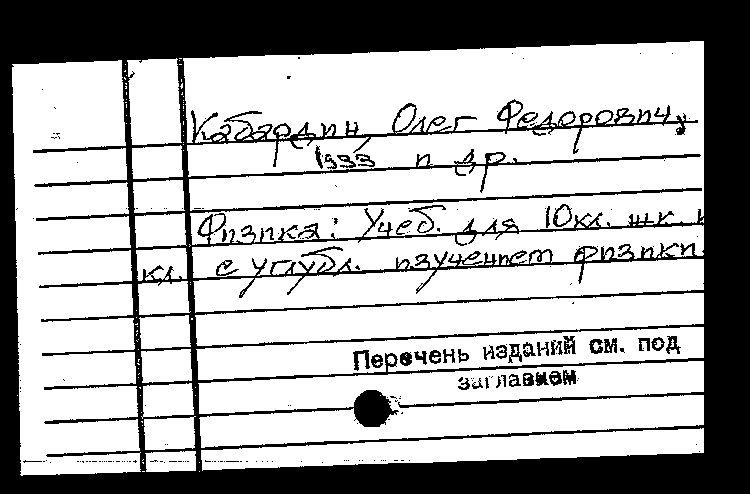 Кабардин, Олег Федорович,
1933 и др.
Физика: Учеб. для 10кл. шк. и
кл. с углубл. изучением физики.
Перечень изданий см. под
заглавием